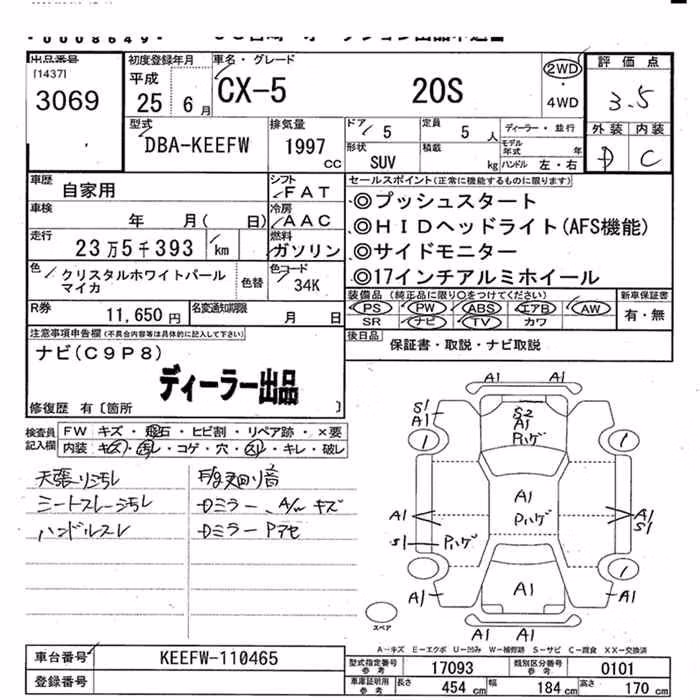 出品番号
[1437]
3069
初度登録年月
平成
25 6月
車名・グレード
CX-5 20S
2WD
・
4WD
評価点
3.5
外装 内装
D C
型式
DBA-KEEFW
排気量
1997
cc
ドア 5
定員 5 人
ディーラー・並行
モデル年式 年
形状 SUV
積載 kg
ハンドル 左・右
車歴 自家用
シフト FAT
車検 年 月( 日)
冷房 AAC
走行 23万5千393 km
燃料 ガソリン
色 クリスタルホワイトパールマイカ
色替
色コード 34K
R券 11,650円
名変通知期限 月 日
セールスポイント(正常に機能するものに限ります)
◎プッシュスタート
◎HIDヘッドライト(AFS機能)
◎サイドモニター
◎17インチアルミホイール
装備品 (純正品に限り○をつけてください)
PS PW ABS エアB AW
SR ナビ TV カワ
新車保証書
有・無
後日品
保証書・取説・ナビ取説
注意事項申告欄(不具合内容等は具体的に記入して下さい)
ナビ(C9P8)
ディーラー出品
修復歴 有〔箇所 〕
検査員記入欄
FW キズ・飛石・ヒビ割・リペア跡・×要
内装 キズ・汚レ・コゲ・穴・スレ・キレ・破レ
天張り汚れ
シートスレ・汚れ
ハンドルスレ
Dミラー、A/w キズ
Dミラー Pアセ
A1 A1
S1
A1
S2
A1
Pハゲ
1 1
A1
A1
Pハゲ
A1
S1
S1 Pハゲ
1
A1
A1
A1
スペア
A-キズ E-エクボ U-凹み W-補修跡 S-サビ C-腐食 XX-交換済
車台番号 KEEFW-110465
登録番号
型式指定番号 参考 17093
類別区分番号 参考 0101
車庫証明用 参考 長さ 454cm 幅 184cm 高さ 170cm